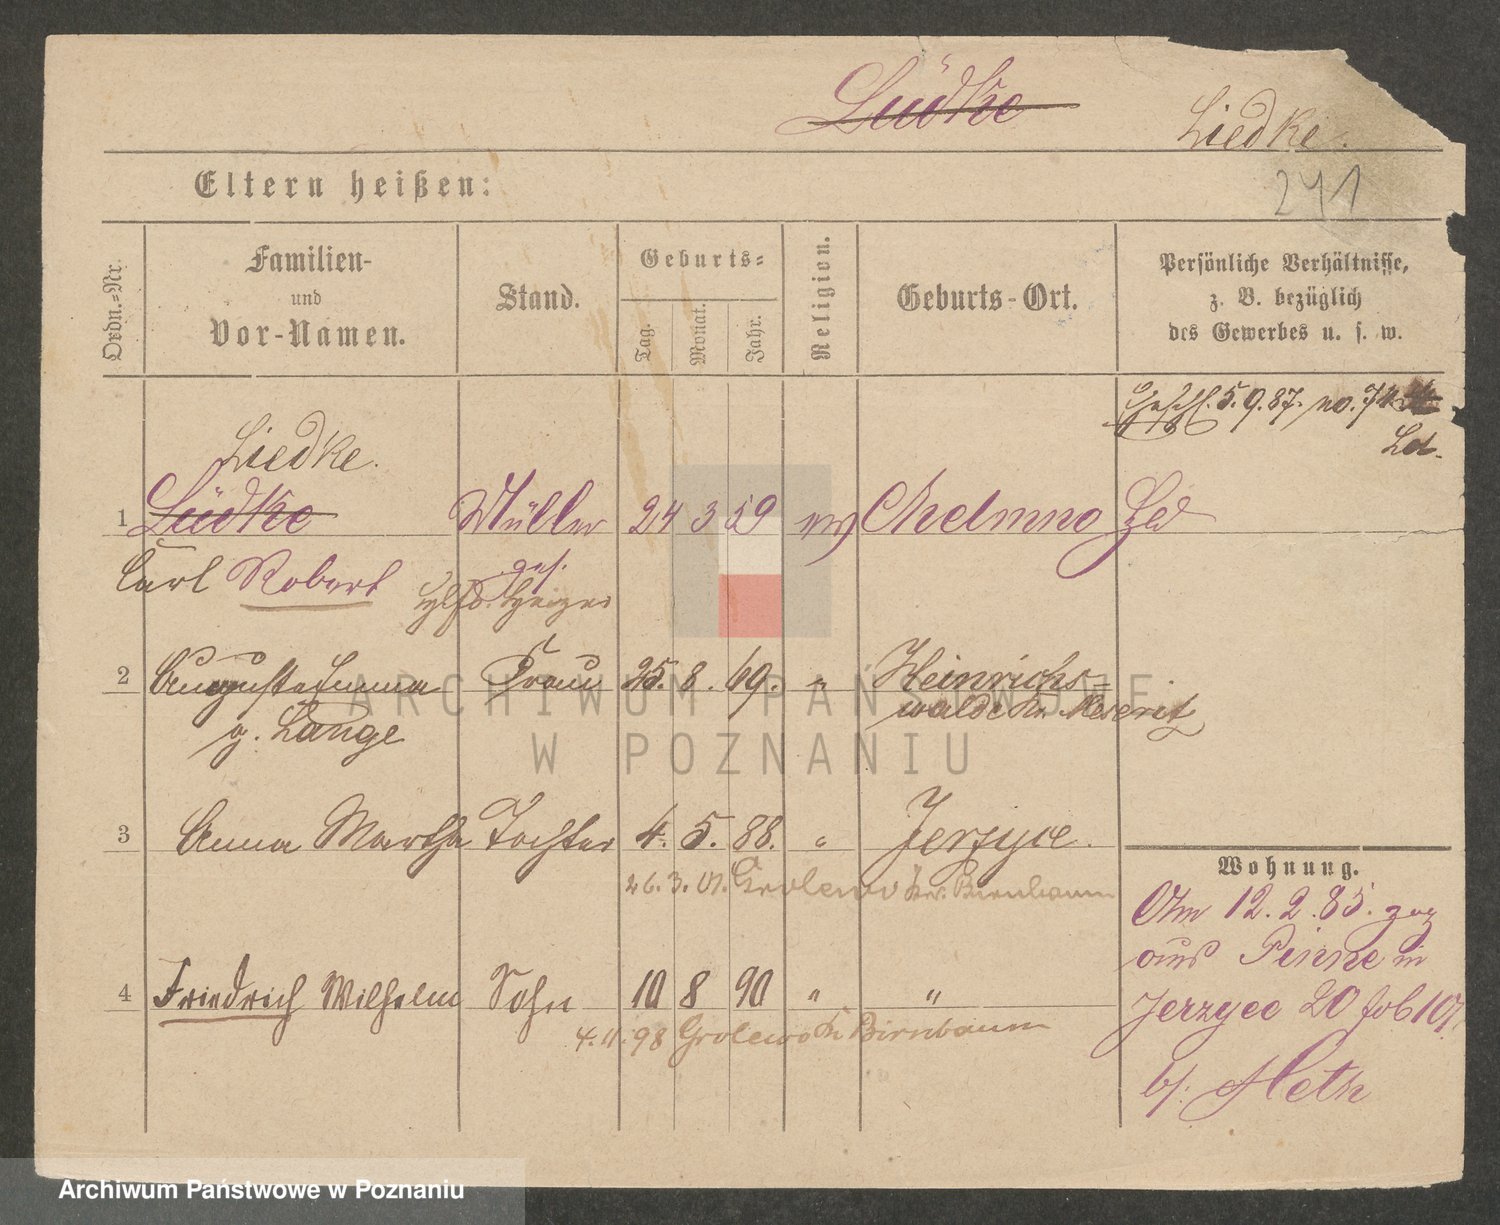 Lüdke Liedke.
Eltern heißen:
241
Ordn.-Nr.
Familien-
und
Vor-Namen.
Stand.
Geburts-
Tag.
Monat.
Jahr.
Religion.
Geburts-Ort.
Persönliche Verhältnisse,
z. B. bezüglich
des Gewerbes u. s. w.
5.9.87. no. 74
Liedke.
1 Lüdke Müller 24 3 59 Chelmno
Carl Robert ges.
Heizer
2 Auguste Emma Frau 25. 8. 69. " Heinrichs-
g. Lange walde Kr. Meseritz
3 Anna Martha Tochter 4. 5. 88. " Jerzyce.
26. 3. 01. Grolewo Kr. Birnbaum
4 Friedrich Wilhelm Sohn 10 8 90 " "
4. 11. 98 Grolewo Kr Birnbaum
Wohnung.
Am 12. 2. 85. zog
aus Pinne in
Jerzyce 20
b/.
ARCHIWUM PAŃSTWOWE
W POZNANIU
Archiwum Państwowe w Poznaniu